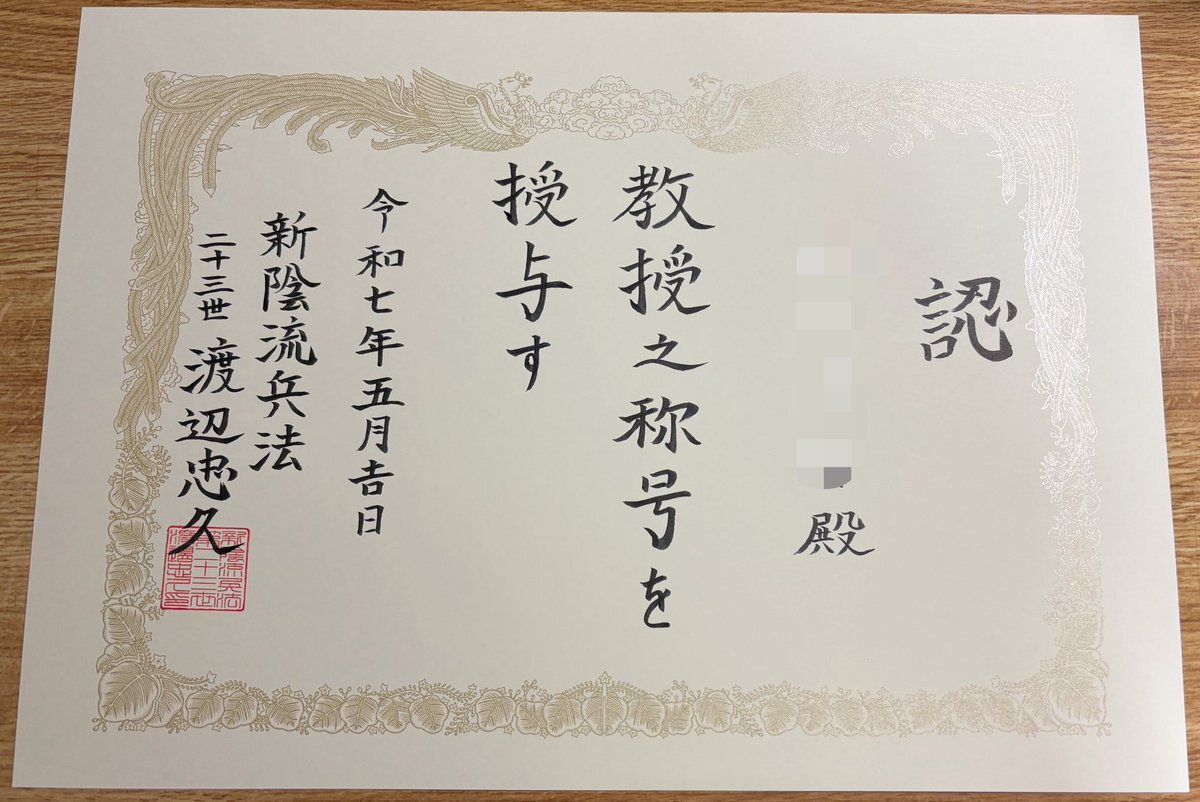 認
殿
教授之称号を
授与す
令和七年五月吉日
新陰流兵法
二十三世 渡辺忠久